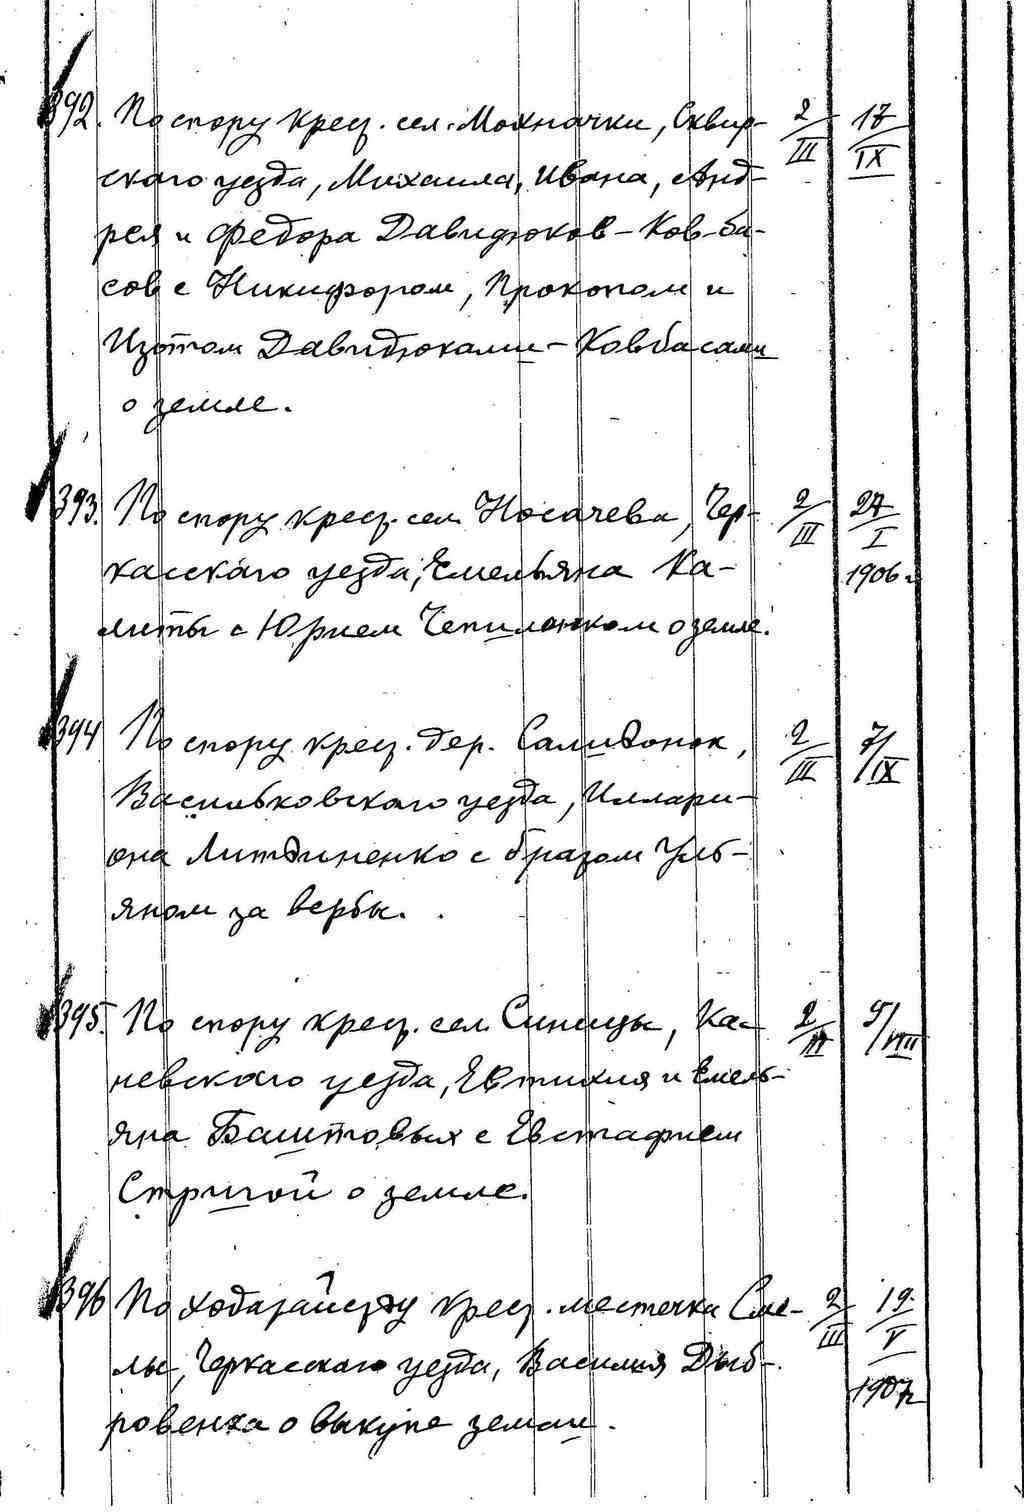 392. По спору крест. сел. Мохначки, Сквир- 2/III 17/IX
ского уезда, Михаила, Ивана, Анд-
рея и Федора Давидюков-Ковба-
сов с Никифором, Прокопом и
Изотом Давидюками-Ковбасами
о земле.
393. По спору крест. сел. Носачева, Чер- 2/III 27/I
касского уезда, Емельяна Ка- 1906 г
литы с Юрием Чепиленком о земле.
394 По спору крест. дер. Салидонок, 2/III 7/IX
Васильковского уезда, Иллари-
она Литвиненко с братом Уль-
яном за вербы.
395. По спору крест. сел. Синицы, Ка- 2/III 5/VIII
невского уезда, Евтихия и Емель-
яна Баштовых с Евстафием
Стригой о земле.
396 По ходатайству крест. местечка Сме- 2/III 19/V
лы, Черкасского уезда, Василия Дыб- 1907г
ровенка о выкупе земли.